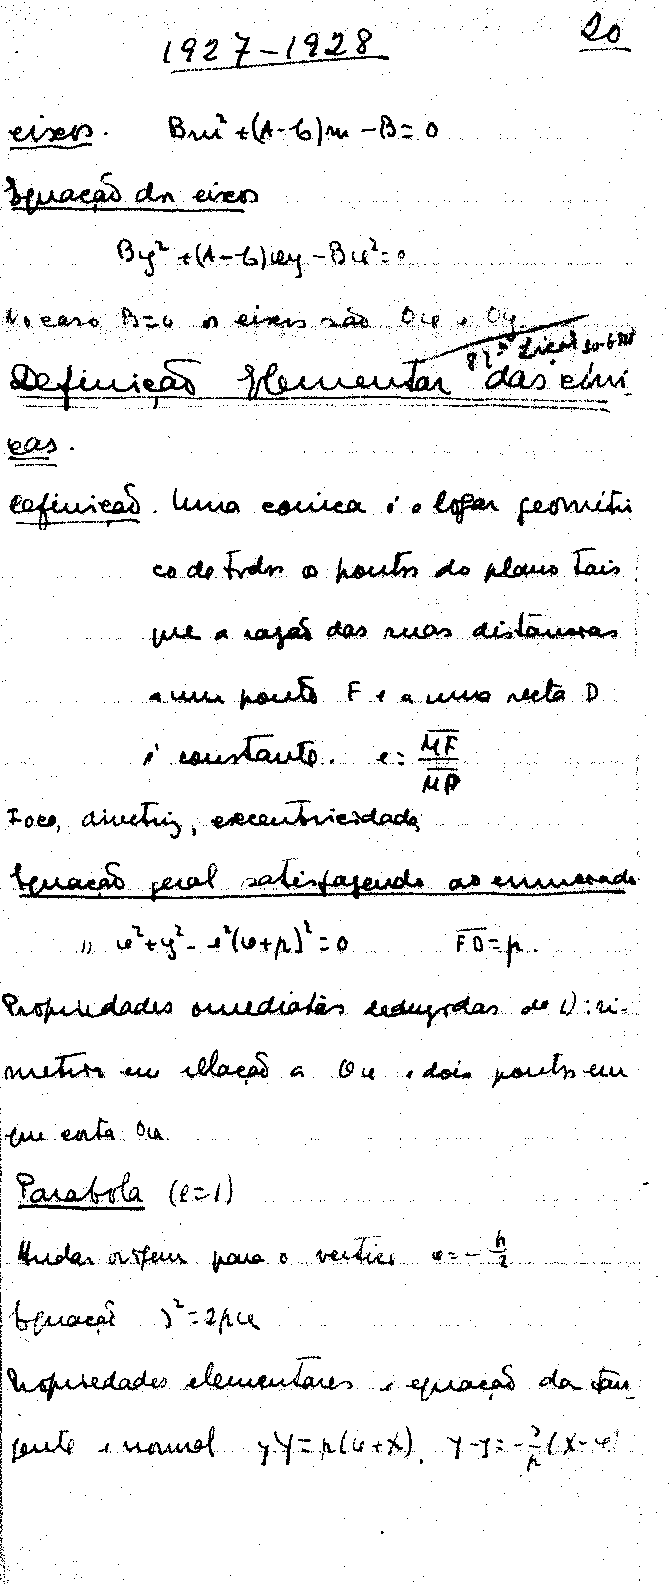 20
1927-1928
eixos. Bm²+(A-C)m-B=0
Equação dos eixos
By²+(A-C)xy-Bx²=0
No caso B=0 os eixos são Ox e Oy
Lição
Definição Elementar das cóni-
cas.
Definição. Uma conica é o logar geométri
co de todos os pontos do plano tais
que a razão das suas distâncias
a um ponto F e a uma recta D
é constante. e= MF/MP
Foco, directriz, excentricidade
Equação geral satisfazendo ao enunciado
1) x²+y²-e²(x+p)²=0 FD=p.
Propriedades imediatas deduzidas de 1): si-
metria em relação a Ox e dois pontos em
que corta Ox
Parabola (e=1)
Mudar origem para o vertice x=-p/2
Equação y²=2px
Propriedades elementares e equação da tan-
gente e normal yY=p(x+X). Y-y=-y/p(X-x)